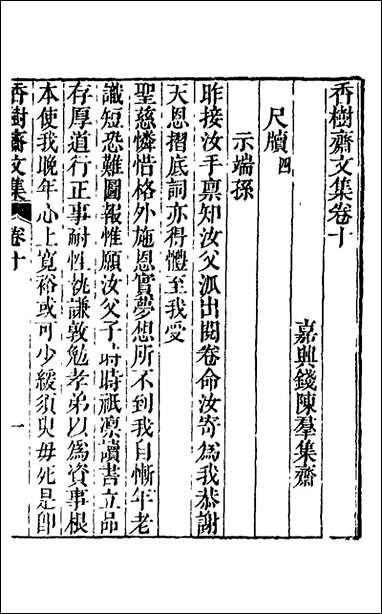 香樹齋文集卷十
嘉興錢陳羣集齋
尺牘四
示端孫
昨接汝手稟知汝父派出閱卷命汝寄爲我恭謝
天恩摺底詞亦得體至我受
聖慈憐惜格外施恩實夢想所不到我自慚年老
識短恐難圖報惟願汝父子時時祇凛讀書立品
存厚道行正事耐性執謙敦勉孝弟以爲資事根
本使我晚年心上寬裕或可少緩須臾毋死是卽
香樹齋文集 卷十 一